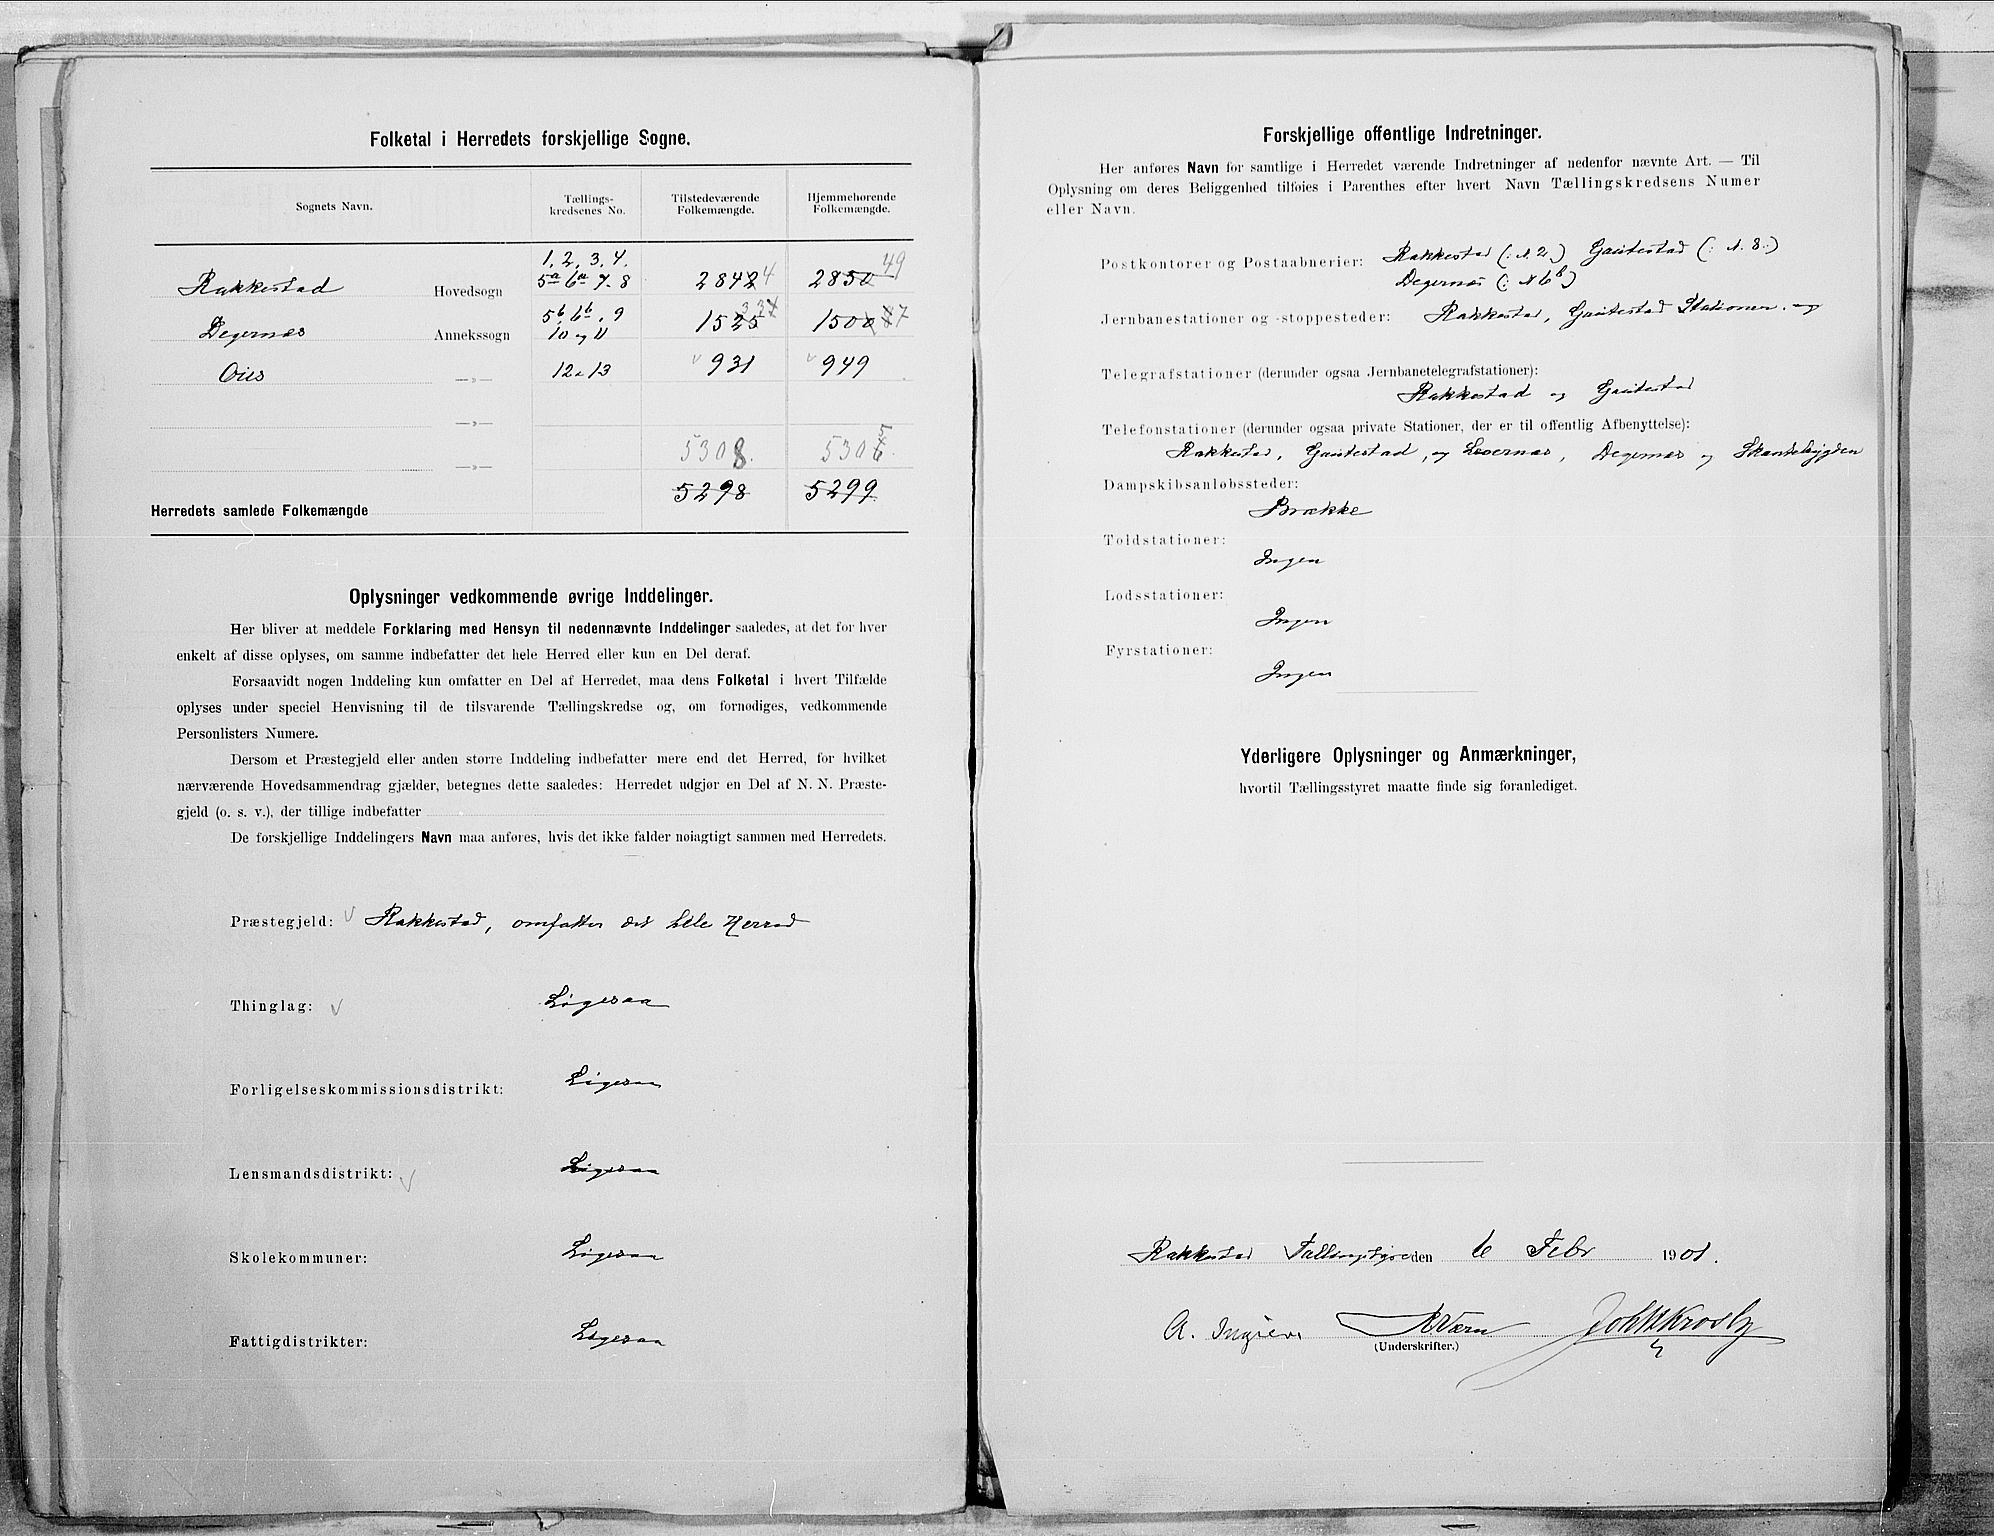 Folketal i Herredets forskjellige Sogne.
Sognets Navn.
Tællings-
kredsenes No.
Tilstedeværende
Folkemængde.
Hjemmehørende
Folkemængde.
1, 2, 3, 4.
Rakkestad Hovedsogn 5a 6a 7. 8 2842 4 2850 49
5b, 6b, 9
Degernes Annekssogn 10 og 11 1525 1500 7
Os —»— 12 & 13 √ 931 √ 949
—»—
5308. 530 5
—»—
5298 5299
Herredets samlede Folkemængde
Oplysninger vedkommende øvrige Inddelinger.
Her bliver at meddele Forklaring med Hensyn til nedennævnte Inddelinger saaledes, at det for hver
enkelt af disse oplyses, om samme indbefatter det hele Herred eller kun en Del deraf.
Forsaavidt nogen Inddeling kun omfatter en Del af Herredet, maa dens Folketal i hvert Tilfælde
oplyses under speciel Henvisning til de tilsvarende Tællingskredse og, om fornødiges, vedkommende
Personlisters Numere.
Dersom et Præstegjeld eller anden større Inddeling indbefatter mere end det Herred, for hvilket
nærværende Hovedsammendrag gjælder, betegnes dette saaledes: Herredet udgjør en Del af N. N. Præste-
gjeld (o. s. v.), der tillige indbefatter
De forskjellige Inddelingers Navn maa anføres, hvis det ikke falder nøiagtigt sammen med Herredets.
Præstegjeld: √ Rakkestad, omfatter det hele Herred
Thinglag: √ Ligesaa
Forligelseskommissionsdistrikt: Ligesaa
Lensmandsdistrikt: √ Ligesaa
Skolekommuner: Ligesaa
Fattigdistrikter: Ligesaa
Forskjellige offentlige Indretninger.
Her anføres Navn for samtlige i Herredet værende Indretninger af nedenfor nævnte Art. — Til
Oplysning om deres Beliggenhed tilføies i Parenthes efter hvert Navn Tællingskredsens Numer
eller Navn.
Postkontorer og Postaabnerier: Rakkestad (: N. 2.) Gautestad (: N. 8.)
Degernes (: N 6b)
Jernbanestationer og -stoppesteder: Rakkestad, Gautestad Stationer. og
Telegrafstationer (derunder ogsaa Jernbanetelegrafstationer):
Rakkestad og Gautestad
Telefonstationer (derunder ogsaa private Stationer, der er til offentlig Afbenyttelse):
Rakkestad, Gautestad, og Levernes, Degernes og Skantebygden
Dampskibsanløbssteder:
Brække
Toldstationer:
Ingen
Lodsstationer:
Ingen
Fyrstationer:
Ingen
Yderligere Oplysninger og Anmærkninger,
hvortil Tællingsstyret maatte finde sig foranlediget.
Rakkestad Tællingsstyre den 6 Febr 1901.
A. Ingier
(Underskrifter.)